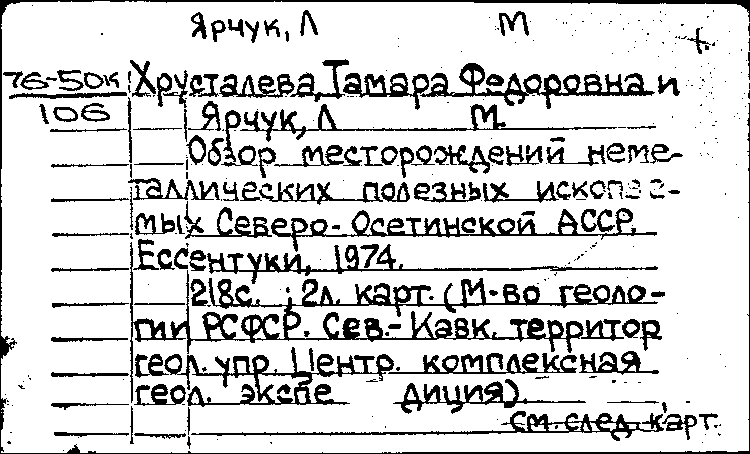 Ярчук, Л М
76-50к Хрусталева, Тамара Федоровна и
106 Ярчук, Л М.
Обзор месторождений неме-
таллических полезных ископае-
мых Северо-Осетинской АССР.
Ессентуки, 1974.
218с. ; 2л. карт. (М-во геоло-
гии РСФСР. Сев.-Кавк. территор
геол. упр. Центр. комплексная
геол. экспе диция).
см. след. карт.